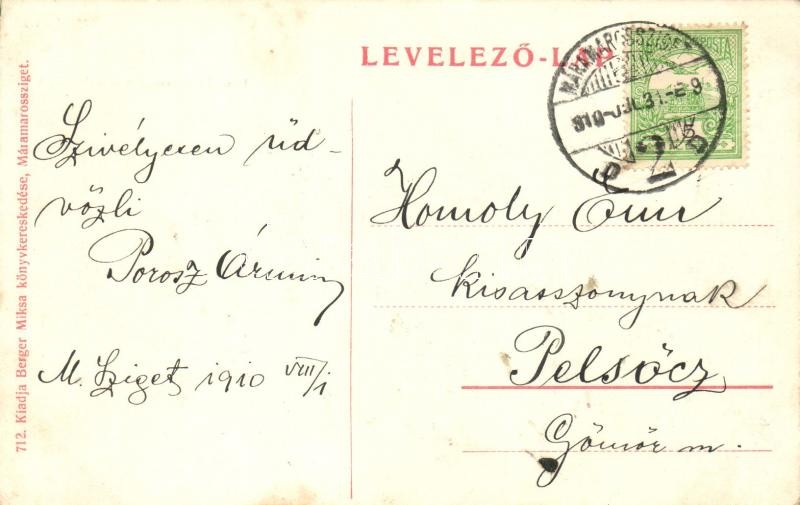 LEVELEZŐ-LAP
MÁRAMAROSSZIGET
910 JUL. 31.
712. Kiadja Berger Miksa könyvkereskedése, Máramarossziget.
Szivélyesen üd-
vözli
Porosz Ármin
M. Sziget 1910 VIII/1
Homoly
kisasszonynak
Pelsőcz
Gömör m.